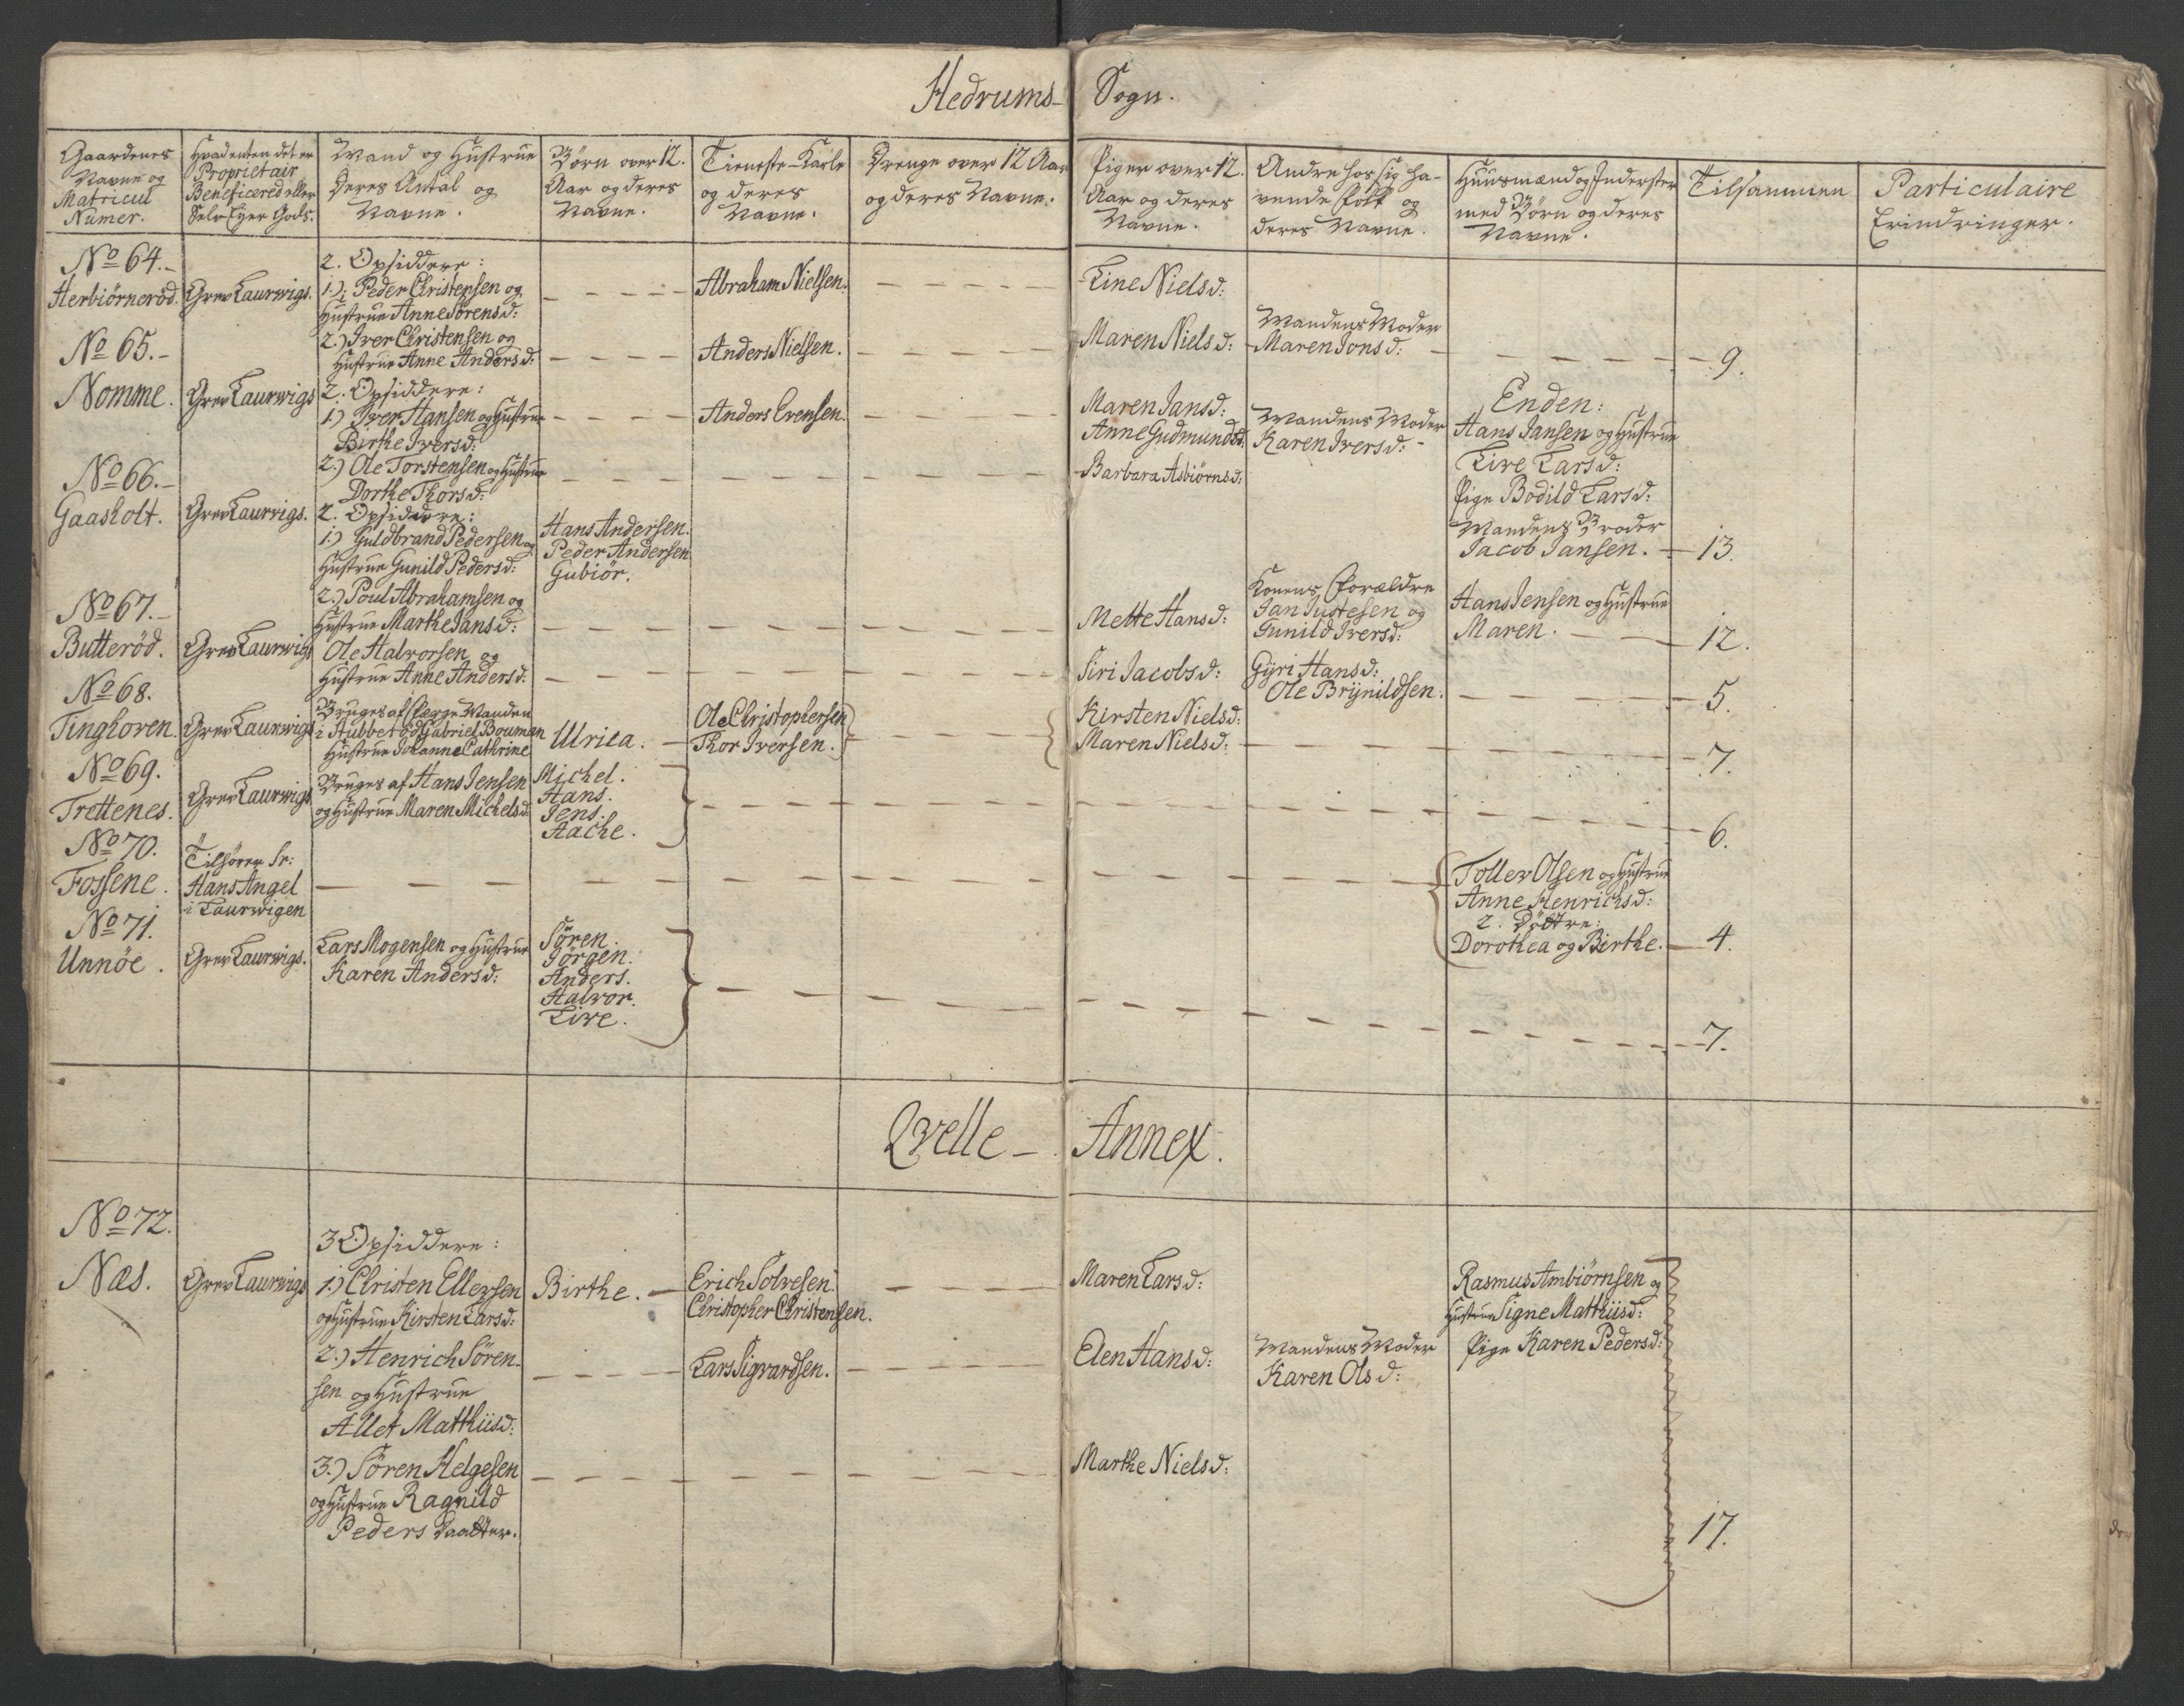 Hedrums- Sogn.
Gaardenes
Navne og
Matricul
Numer.
Hvadenten det er
Proprietair
Beneficered eller
Selv Eyer Gods.
Mand og Hustrue
Deres Antal og
Navne.
Börn over 12.
Aar og deres
Navne.
Tieneste-Karle
og deres
Navne.
Drenge over 12 Aar
og deres Navne.
Piger over 12.
Aar og deres
Navne.
Andre hos sig ha-
vende Folk og
deres Navne.
Huusmænd og Inderster
med Börn og deres
Navne.
Tilsammen
Particulaire
Erindringer.
No 64.
Herbiörneröd.
Grev Laurwigs.
2. Opsiddere:
1.) Peder Christensen og
Hustrue Anne Sörensd:
Abraham Nielsen.
Line Nielsd:
No 65.
2.) Iver Christensen og
Hustrue Anne Andersd:
Anders Nielsen.
Maren Nielsd:
Mandens Moder
Maren Jonsd:
9.
Nomme.
Grev Laurwigs
2. Opsiddere:
1.) Iver Hansen og Hustrue
Birthe Iversd:
Anders Evensen.
Maren Jansd:
Anne Gudmundsd:
Mandens Moder
Karen Iversd:
Enden:
Hans Jansen og Hustrue
Live Larsd:
Pige Bodild Larsd:
Mandens Broder
Jacob Jansen.
13.
2.) Ole Torstensen og Hustrue
Dorthe Thorsd:
Barbara Asbiörnsd:
No 66.
Gaasholt.
Grev Laurvigs.
2. Opsiddere:
1.) Guldbrand Pedersen og
Hustrue Gunild Pedersd:
Hans Andersen.
Peder Andersen
Gubiör.
2.) Poul Abrahamsen og
Hustrue Marthe Jansd:
Mette Hansd:
Konens Forældre
Jan Justesen og
Gunild Iversd:
Hans Jensen og Hustrue
Maren.
12.
No 67.
Butteröd.
Grev Laurwigs
Ole Halvorsen og
Hustrue Anne Andersd:
Siri Jacobsd:
Gyri Hansd:
Ole Brynildsen.
5.
No 68.
Tinghoven.
Grev Laurwigs
Bruges af Færge Manden
i Hubbet od Gabriel Bouman
Hustrue Johanne Cathrine
Ulrica.
Ole Christophersen
Thor Iversen.
Kirsten Nielsd:
Maren Nielsd:
7.
No 69.
Trettenes.
Grev Laurwigs
Bruges af Hans Jensen
og Hustrue Maren Michelsd:
Michel.
Hans.
Jens.
Aache.
6.
No 70.
Fossene.
Tilhörer Sr:
Hans Angel
i Laurwigen
Toller Olsen og Hustrue
Anne Henrichsd:
2. Döttre:
Dorothea og Birthe.
4.
No 71.
Unnöe.
Grev Laurwigs.
Lars Mogensen og Hustrue
Karen Andersd:
Sören.
Jörgen.
Anders.
Halvor.
Live.
7.
Qvelle- Annex.
No 72.
Næs.
Grev Laurwigs
3 Opsiddere:
1.) Christen Ellersen
og Hustrue Kirsten Larsd:
Birthe.
Erich Solvesen.
Christopher Christensen.
Maren Larsd:
Rasmus Ambiörnsen og
Hustrue Signe Matthiisd:
Pige Karen Pedersd:
2.) Henrich Sören-
sen og Hustrue
Allet Matthiisd:
Lars Sigvardsen.
Elen Hansd:
Mandens Moder
Karen Olsd:
3.) Sören Helgesen
og Hustrue Ragnild
Peders Daatter.
Marthe Nielsd:
17.